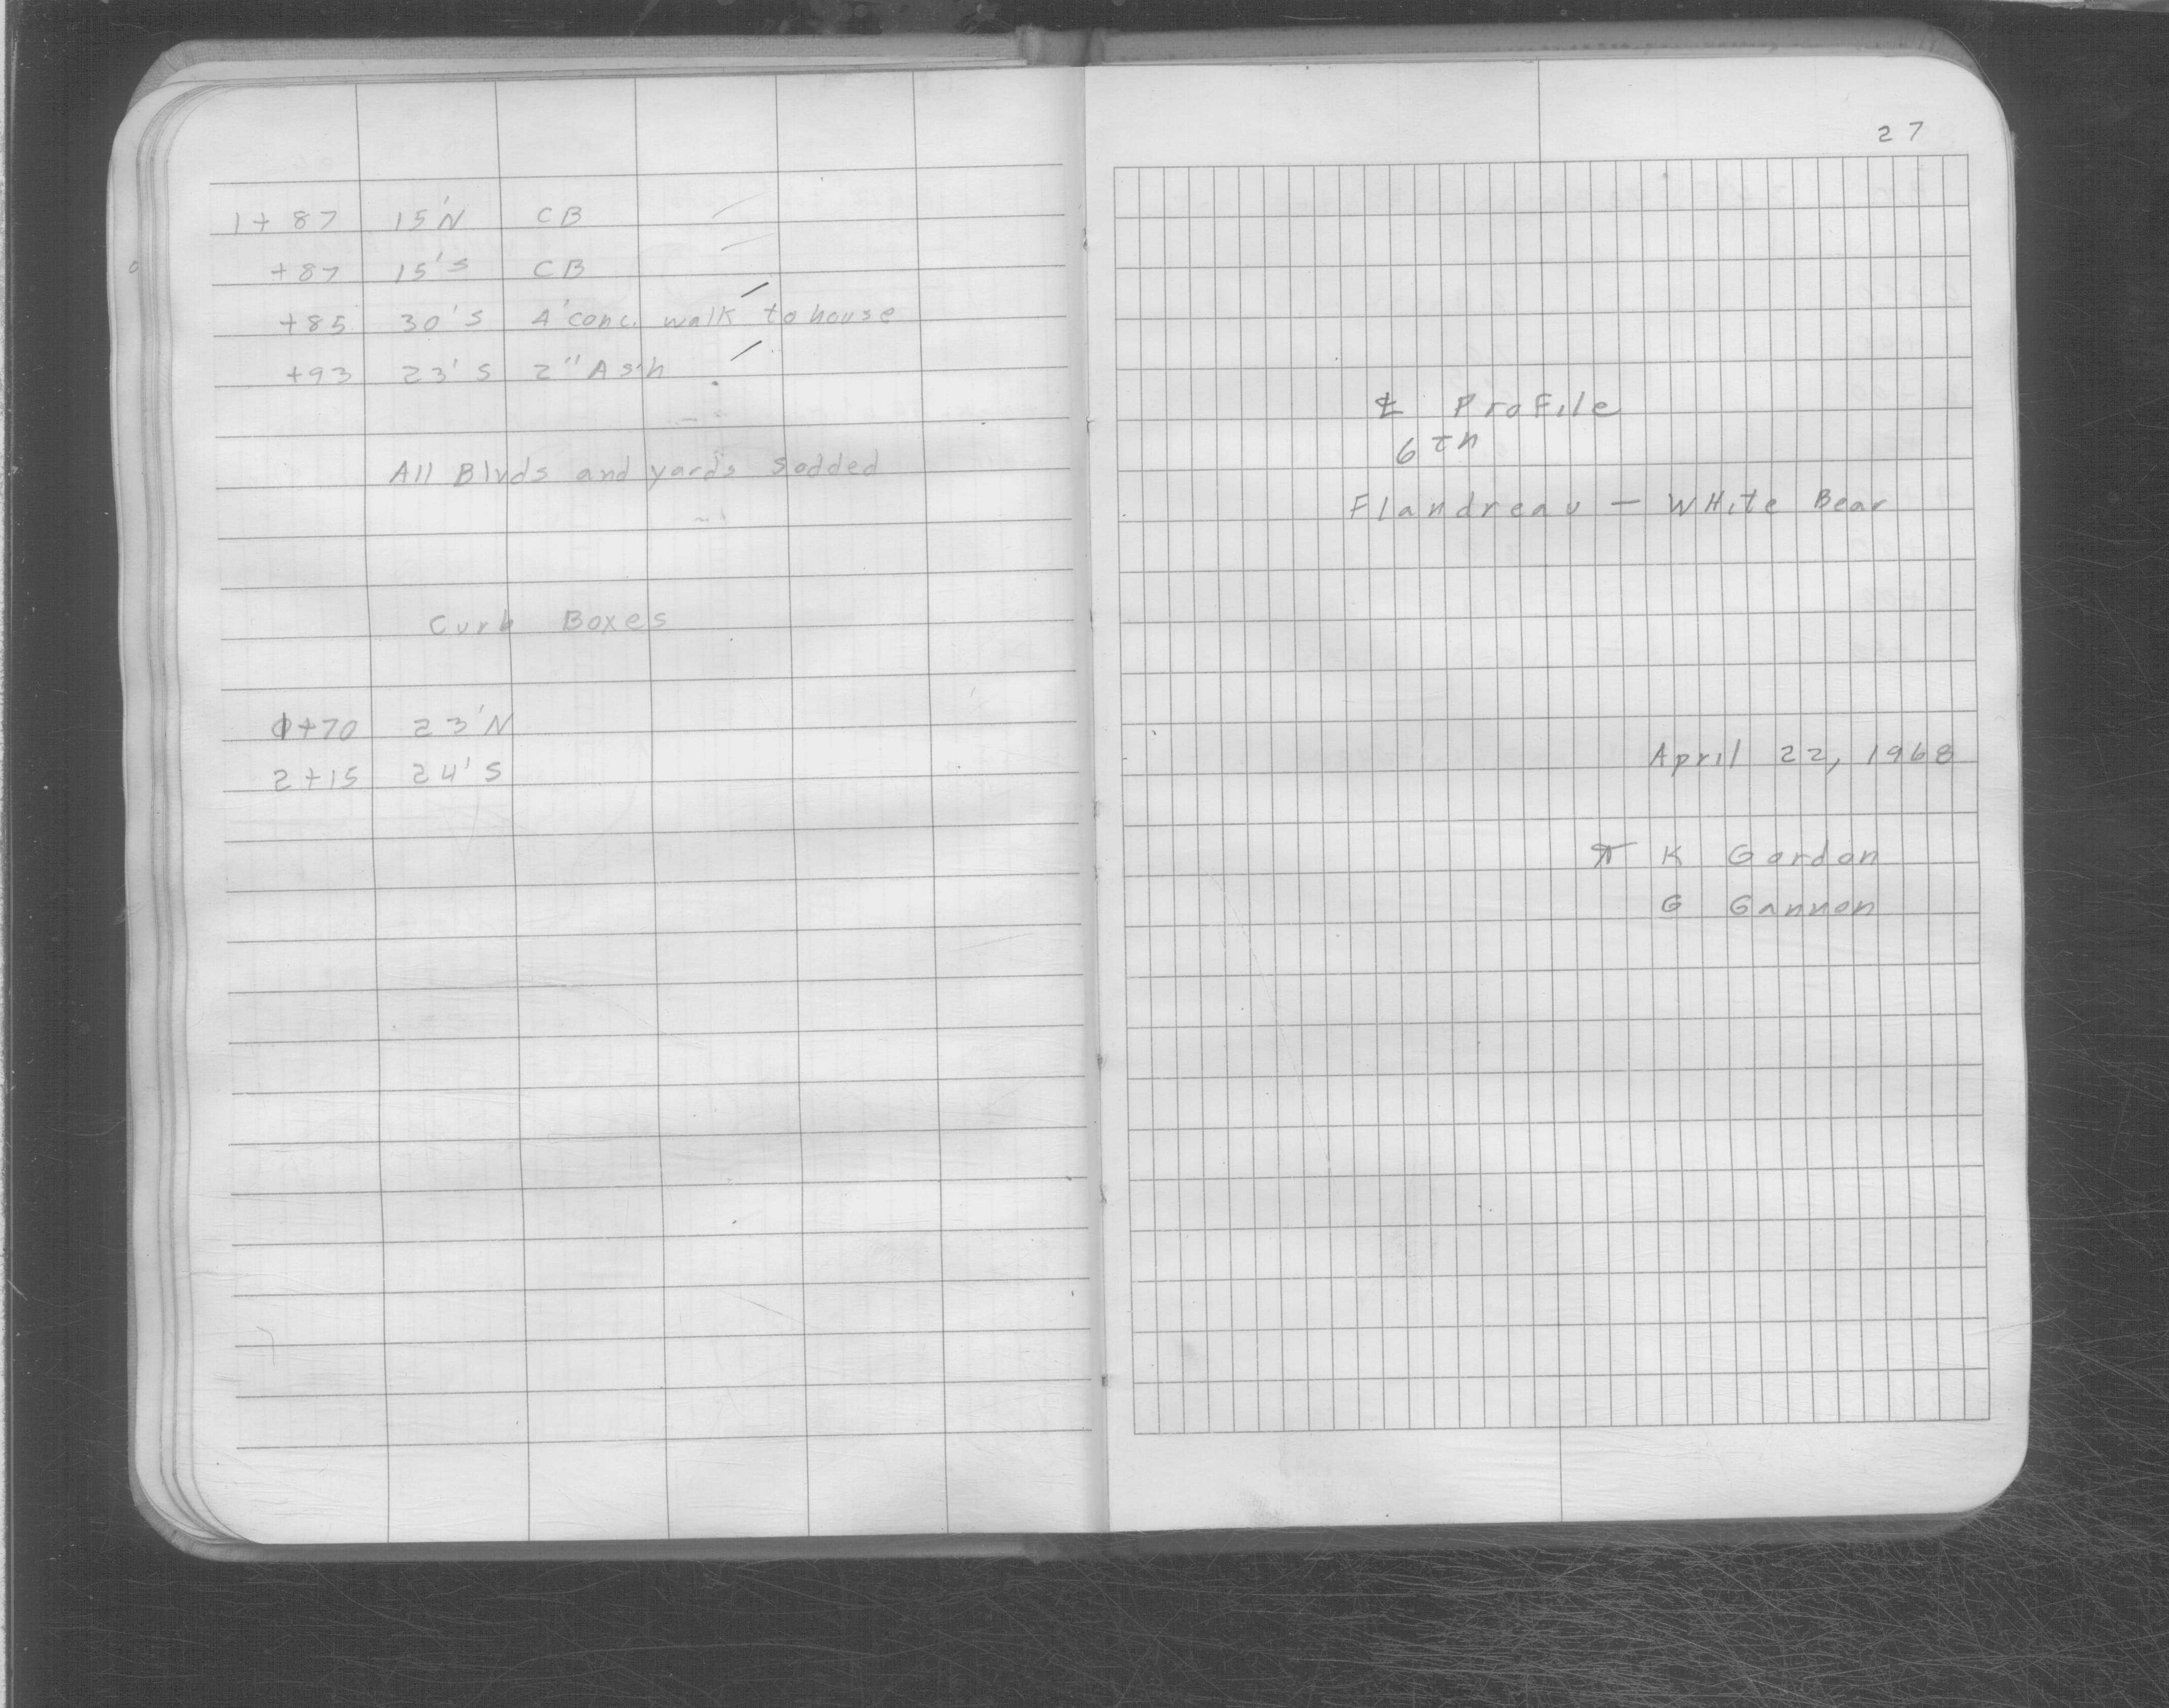 1+87 15'N CB
+87 15'S CB
+85 30'S 4' conc. walk to house
+93 23'S 2" Ash
All Blvds and yards sodded
Curb Boxes
+70 23'N
2+15 24'S
27
℄ ProFile
6th
Flandreau — WHite Bear
April 22, 1968
π K Gordon
G Gannon